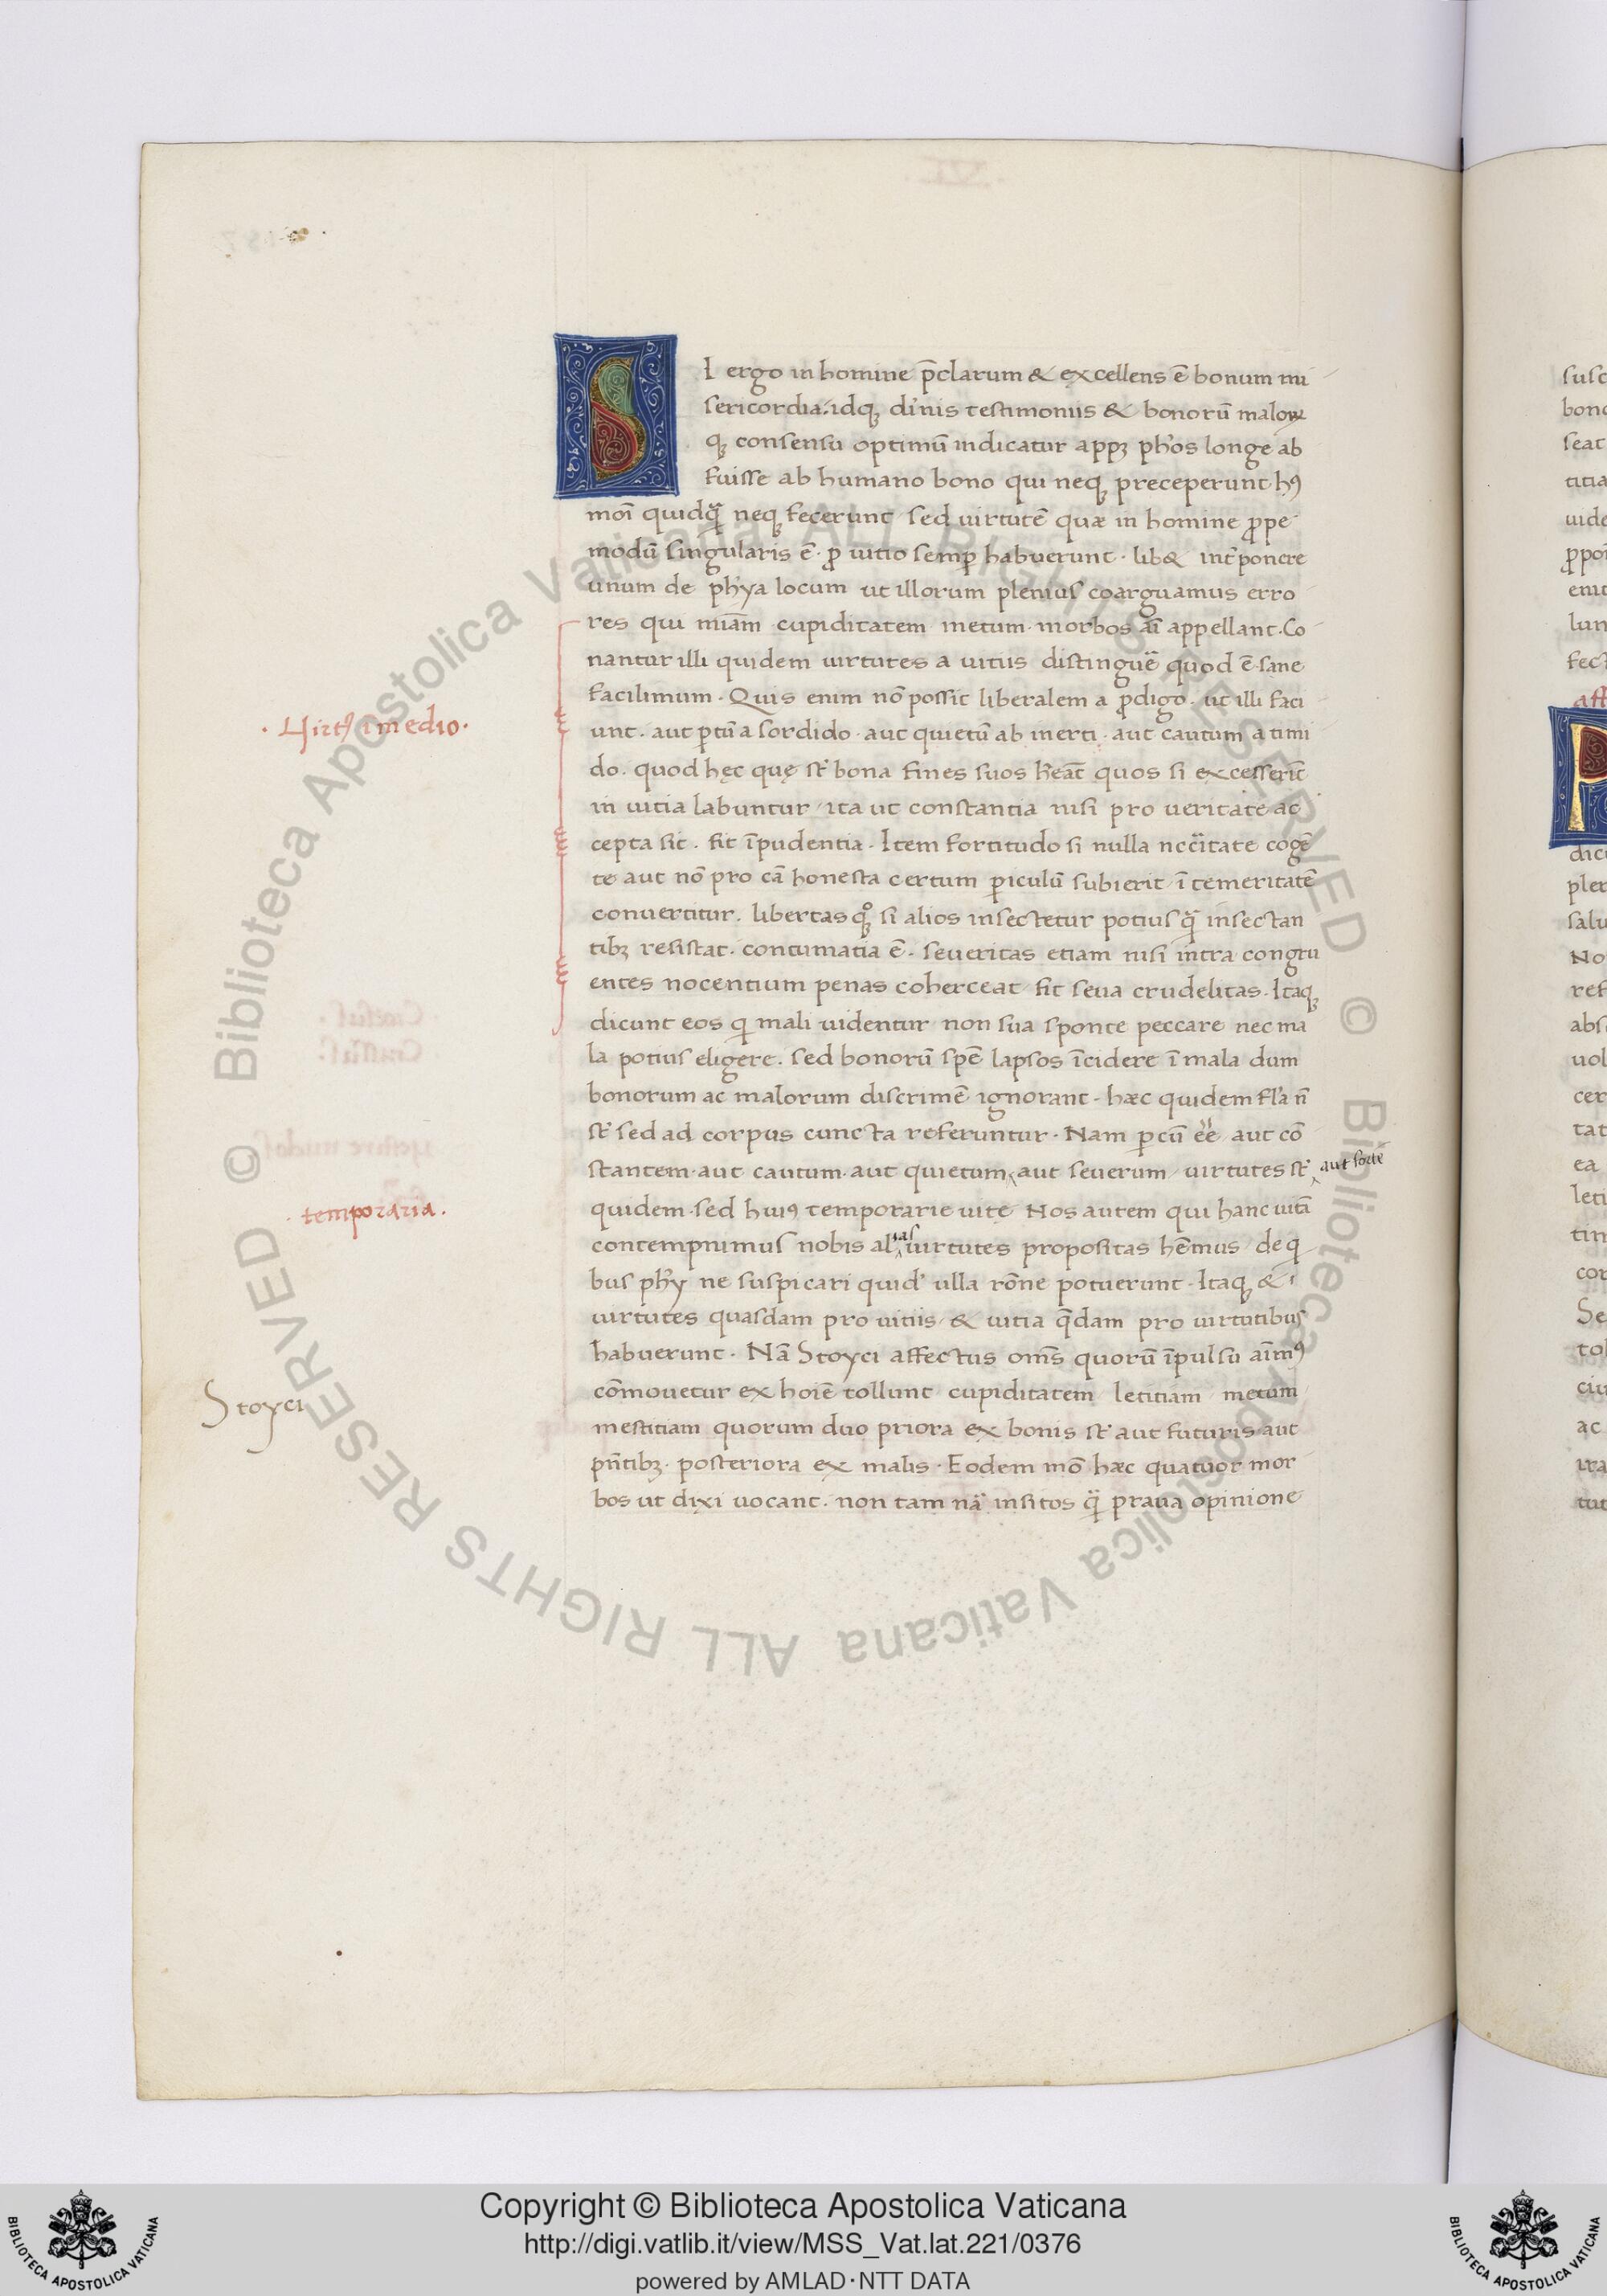 SI ergo in homine p̄clarum & excellens ē bonum mi
sericordia. idq; diuinis testimoniis & bonorū maloꝝ
q; consensu optimū indicatur appꝫ pħos longe ab
fuisse ab humano bono qui neq; preceperunt hꝰ
moi quidq̄ neq; fecerunt sed uirtutē quæ in homine ꝓpe
modū singularis ē · ꝓ uitio semꝑ habuerunt · lib& int̄ponere
unum de phỹa locum ut illorum plenius coarguamus erro
res qui miam̄ cupiditatem metum · morbos ai̅ appellant · Co
nantur illi quidem uirtutes a uitiis distinguē quod ē sane
facilimum · Quis enim nō possit liberalem a ꝓdigo · ut illi faci
unt · aut ꝑcū a sordido · aut quietū ab inerti · aut cautum a timi
do · quod hęc quę st̄ bona fines suos hēāt quos si excesserīt
in uitia labuntur / ita ut constantia nisi pro ueritate ac
cepta sit · fit īpudentia · Item fortitudo si nulla nccītate cogē
te aut nō pro cā honesta certum ꝑiculū subierit / ī temeritatē
conuertitur · libertas q;o si alios insectetur potius q̄ insectan
tibꝫ resistat · contumatia ē · seueritas etiam nisi intra congru
entes nocentium penas coherceat fit seua crudelitas · Itaq;
dicunt eos q̄ mali uidentur non sua sponte peccare nec ma
la potius eligere · sed bonorū spē lapsos īcidere ī mala dum
bonorum ac malorum discrimē ignorant · hæc quidem fl̄a n̄
st̄ sed ad corpus cuncta referuntur · Nam ꝑcū ēē aut cō
stantem · aut cautum · aut quietum aut seuerum / uirtutes st̄ aut fortē
quidem · sed huiꝰ temporarie uite Nos autem qui hanc uitā
contempnimus nobis alias uirtutes propositas hēmus / de q
bus phỹ ne suspicari quid̄ ulla rōne potuerunt · Itaq; & ı
uirtutes quasdam pro uitiis / & uitia q̄dam pro uirtutibus
habuerunt · Nā Stoyci affectus om̄s quorū īpulsu aīmꝰ
cōmouetur ex hoīe tollunt cupiditatem letitiam metum
mestitiam quorum duo priora ex bonis st̄ aut futuris aut
pn̄tibꝫ · posteriora ex malis · Eodem mō hæc quatuor mor
bos ut dixi uocant · non tam nā insitos q̄ praua opinione
· Uirtꝰ ī medio ·
· temporaria ·
Stoyci
susc
bono
seat
titia
uide
enit
lun
fect
aff
P
dici
plet
salu
No
ref
abs
uol
cer
tat
ea
leti
tim
cor
Se
tol
ciu
ac
ita
tut
© Biblioteca Apostolica Vaticana ALL RIGHTS RESERVED © Biblioteca Apostolica Vaticana ALL RIGHTS RESERVED
BIBLIOTECA APOSTOLICA VATICANA
Copyright © Biblioteca Apostolica Vaticana
http://digi.vatlib.it/view/MSS_Vat.lat.221/0376
powered by AMLAD·NTT DATA
BIBLIOTECA APOSTOLICA VATICANA